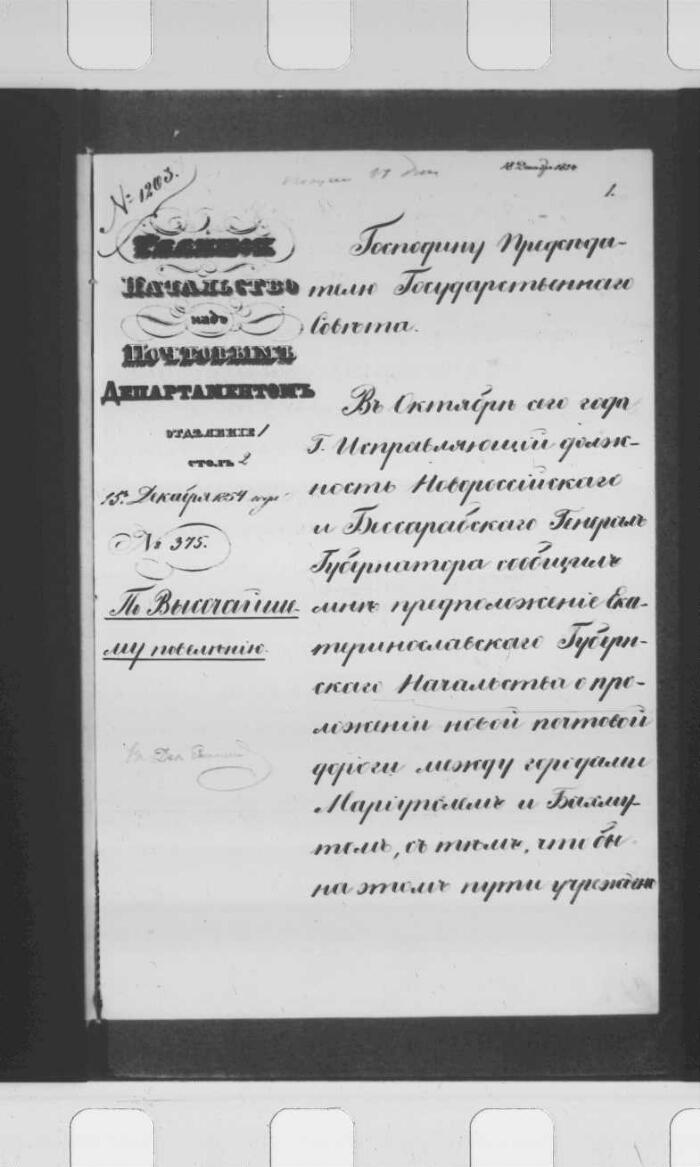 № 1203.
18 Декабр 1854
1.
Главное
Начальство
надъ
Почтовымъ
Департаментомъ
отделение 1
столъ 2
15го Декабря 1854 года
№ 375.
По Высочайше-
му повелѣнію.
Господину Предсѣда-
телю Государственнаго
Совѣта.
Въ Октябрѣ сего года
Г. Исправляющій долж-
ность Новороссійскаго
и Бессарабскаго Генералъ
Губернатора сообщилъ
мнѣ предположеніе Ека-
теринославскаго Губерн-
скаго Начальства о про-
ложеніи новой почтовой
дороги между городами
Маріуполемъ и Бахму-
томъ, съ тѣмъ, что бы
на этомъ пути учреждено